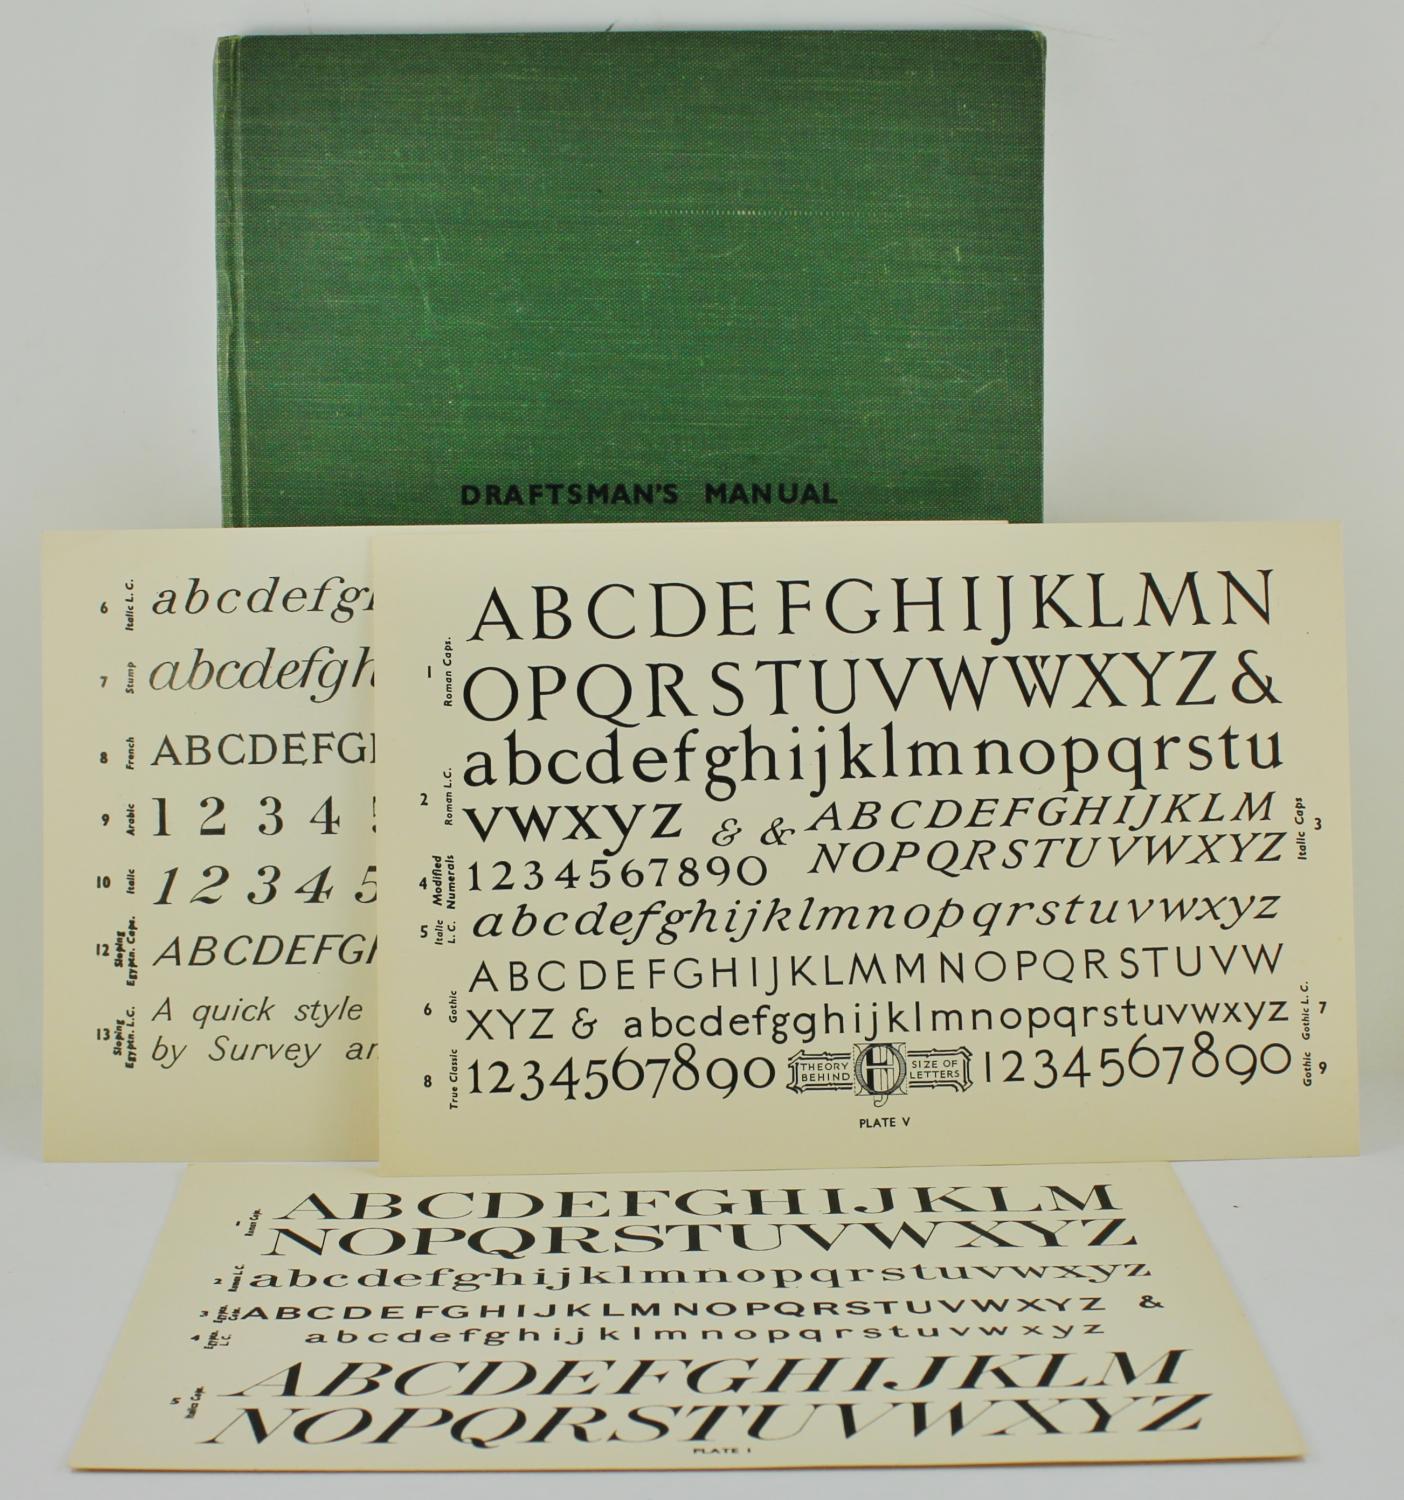 DRAFTSMAN'S MANUAL
6 Italic L. C. abcdefg
7 Stump abcdefgh
8 French ABCDEFG
9 Arabic 1 2 3 4
10 Italic 1 2 3 4 5
12 Sloping Egyptn. Caps. ABCDEFG
13 Sloping Egyptn. L.C. A quick style
by Survey
1 Roman Caps. ABCDEFGHIJKLMN
OPQRSTUVWWXYZ&
2 Roman L.C. abcdefghijklmnopqrstu
vwxyz & &
ABCDEFGHIJKLM Italic Caps 3
NOPQRSTUVWXYZ
4 Modified Numerals 1234567890
5 Italic L. C. abcdefghijklmnopqrstuvwxyz
6 Gothic ABCDEFGHIJKLMMNOPQRSTUVW
XYZ & abcdefgghijklmnopqrstuvwxyz Gothic L. C. 7
8 True Classic 1234567890
THEORY BEHIND
SIZE OF LETTERS
1234567890 Gothic 9
PLATE V
1 Caps. ABCDEFGHIJKLM
NOPQRSTUVWXYZ
2 L.C. abcdefghijklmnopqrstuvwxyz
3 ABCDEFGHIJKLMNOPQRSTUVWXYZ &
4 L.C. abcdefghijklmnopqrstuvwxyz
5 Italic Caps. ABCDEFGHIJKLM
NOPQRSTUVWXYZ
PLATE I